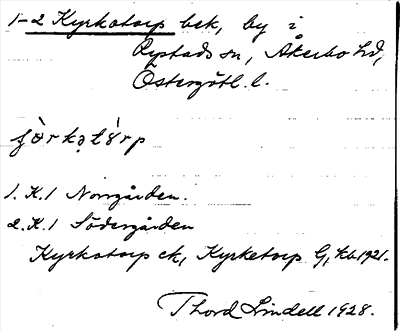 1-2 Kyrkotorp bek, by i
Rystads sn, Åkerbo hd,
Östergötl. l.
1. K.1 Norrgården.
2. K.1 Södergården
Kyrkotorp ek, Kyrketorp G, kb 1921.
Thord Lindell 1928.